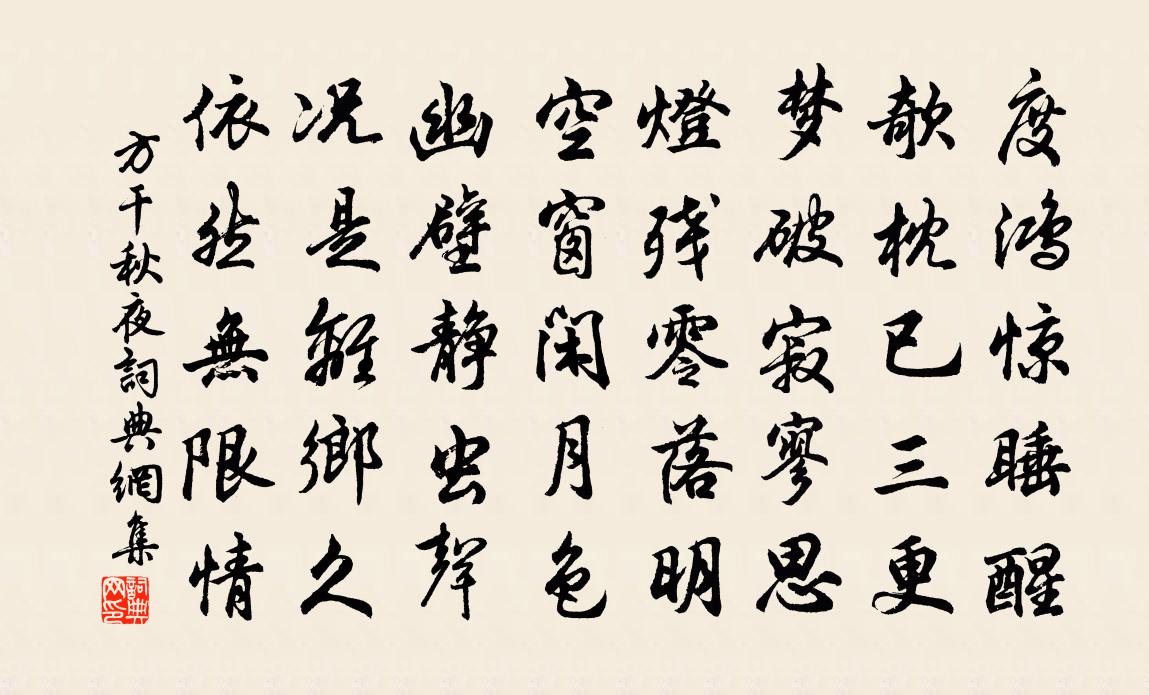 度鴻惊睡醒
欹枕已三更
梦破寂寥思
燈残零落明
空窗闲月色
幽壁静虫聲
况是離鄉久
依然無限情
方干秋夜詞典網集
詞典網印